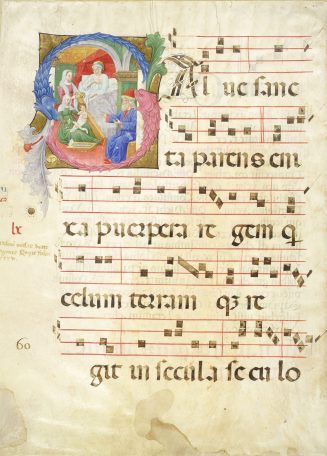 SAl ve sanc
ta parens eni
xa puerpera re gem q
lx
celum terram qꝫ re
60
git in secula se cu lo